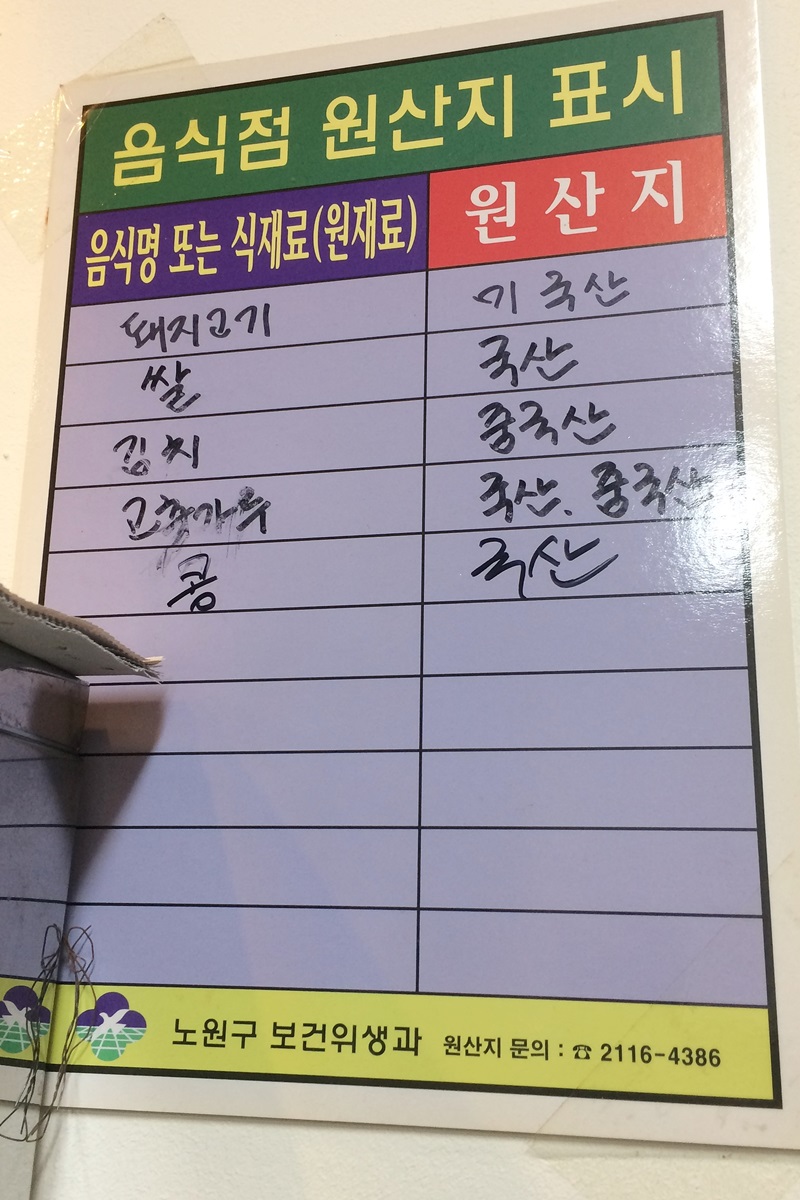 음식점 원산지 표시
음식명 또는 식재료(원재료) 원산지
돼지고기 국산
쌀 국산
김치 중국산
고춧가루 국산. 중국산
콩 국산
노원구 보건위생과 원산지 문의 : ☎ 2116-4386